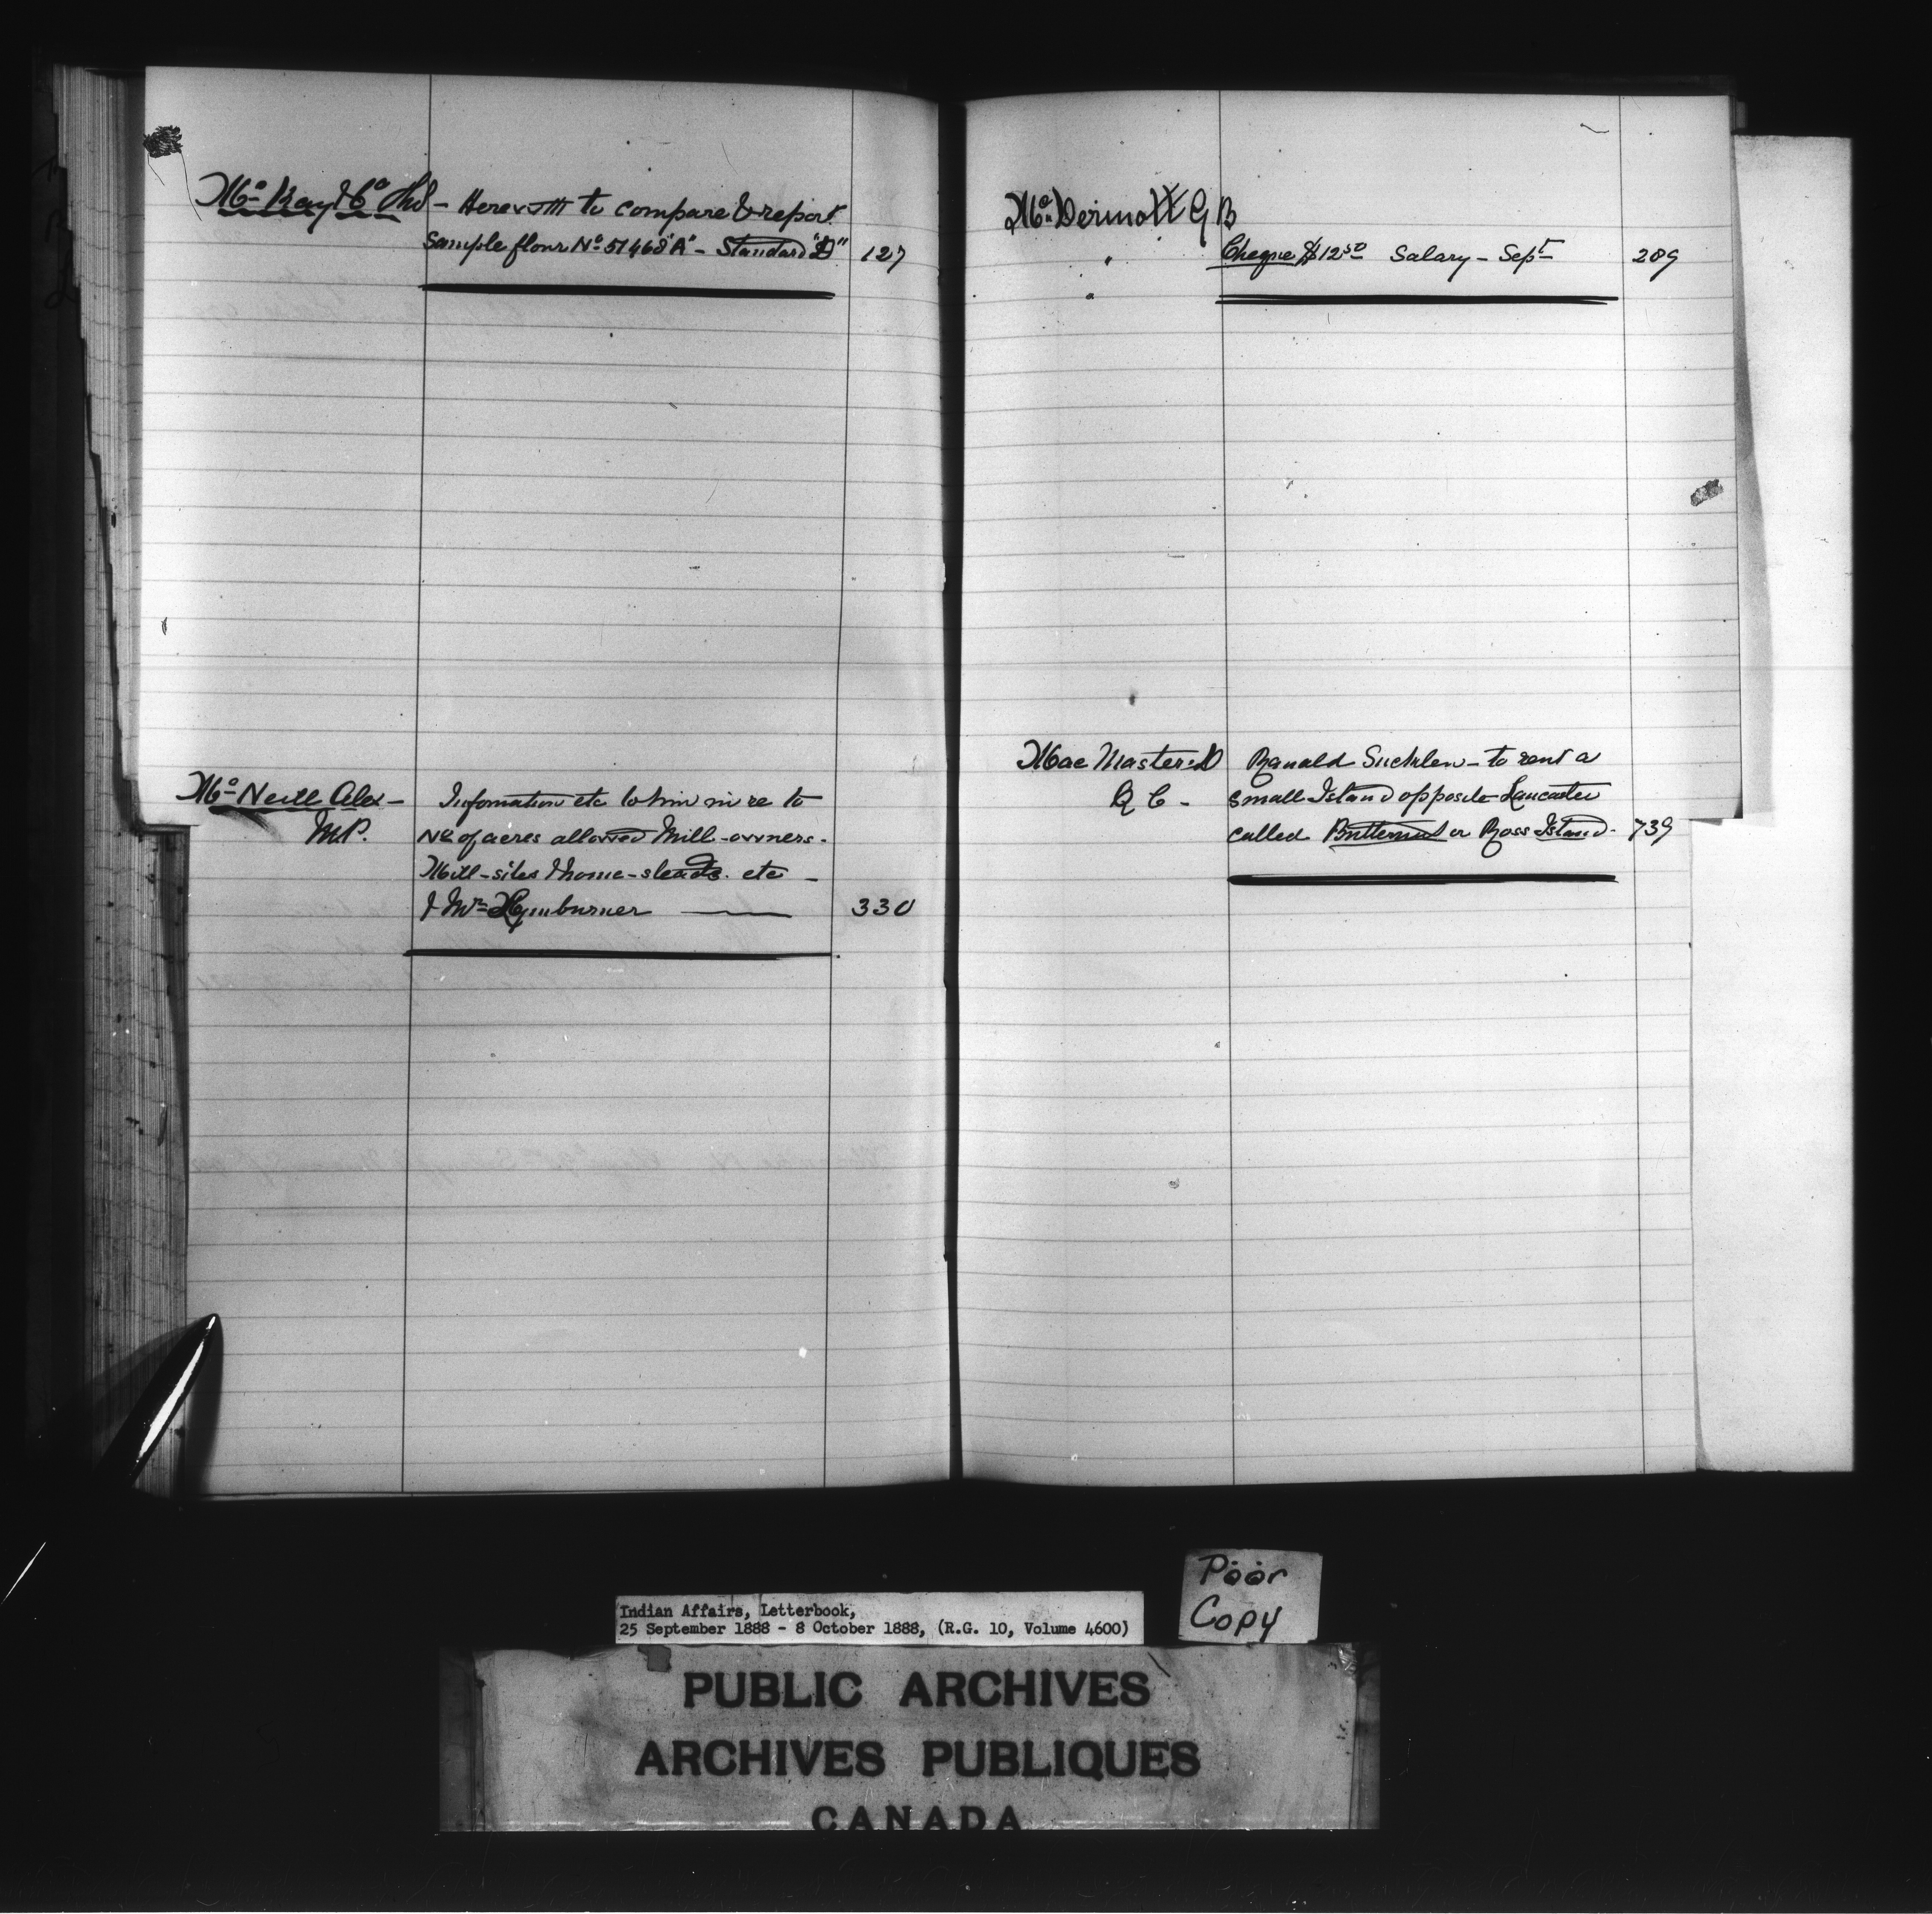 Mc Kay & Co Thos - Herewith to compare & report
Sample flour No 51468 "A" - Standard "D" 127
Mc Neill Alex - Information etc to him in re to
M.P. No of acres allowed Mill-owners.
Mill-sites & home-steads. etc -
& Mr Hymburner 330
Mc Dermott G B
Cheque $12.50 Salary - Sept 289
Mac Master D Ranald - to rent a
Q C - Small Island opposite Lancaster
called Butternut or Ross Island. 739
Poor
Copy
Indian Affairs, Letterbook,
25 September 1888 - 8 October 1888, (R.G. 10, Volume 4600)
PUBLIC ARCHIVES
ARCHIVES PUBLIQUES
CANADA